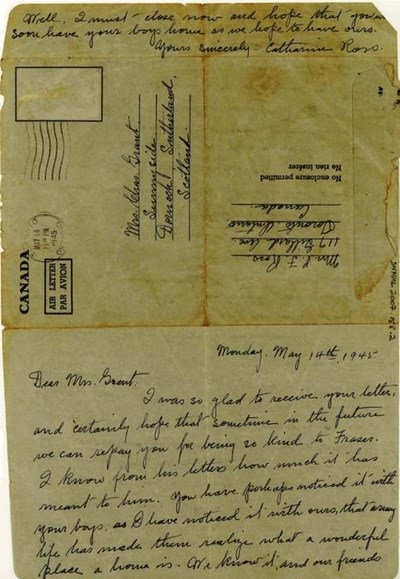 Well, I must close now and hope that you will
soon have your boys home as we hope to have ours.
Yours sincerely - Catharine Ross.
CANADA
MAY 14
PM
1945
AIR LETTER
PAR AVION
Mrs. Chas. Grant.
Sunnyside.
Dornoch. Sutherland.
Scotland.
No enclosure permitted
No rien insérer
Mrs. J. F. Ross
Ave.
Toronto Ontario
Canada.
2007
Monday. May 14th, 1945
Dear Mrs. Grant.
I was so glad to receive your letter,
and certainly hope that sometime in the future
we can repay you for being so kind to Fraser.
I know from his letters how much it has
meant to him. You have perhaps noticed it with
your boys, as I have noticed it with ours, that army
life has made them realize what a wonderful
place a home is. We know it, and our friends